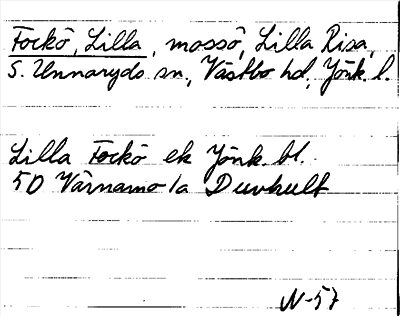 Fockö, Lilla, mossö, Lilla Risa,
S. Unnaryds sn., Västbo hd, Jönk. l.
Lilla Fockö ek Jönk. bl.
50 Värnamo /a Duvhult
N-57